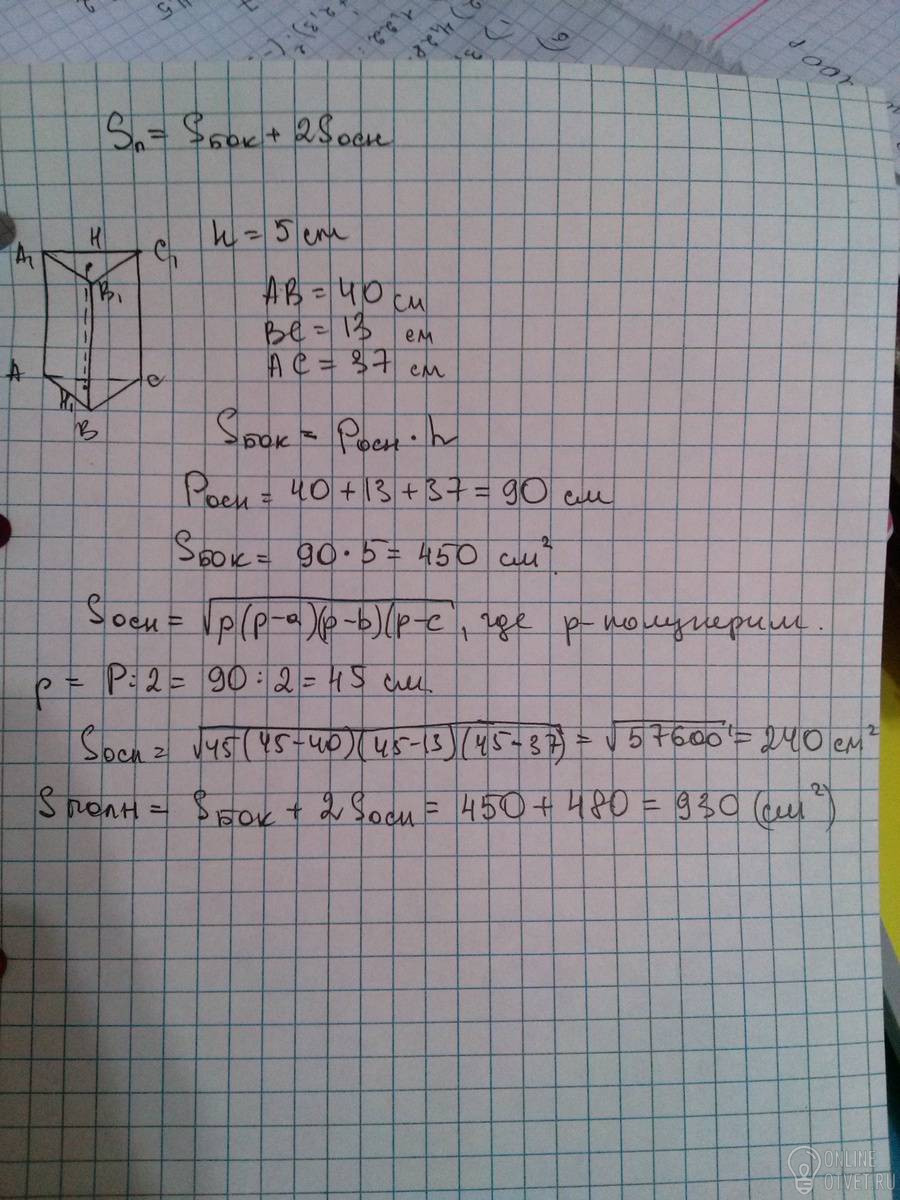 Sп = Sбок + 2Sосн
h = 5 cm
A₁ H C₁
B₁
A C
H₁
B
AB = 40 см
BC = 13 см
AC = 37 см
Sбок = Pосн · h
Pосн = 40 + 13 + 37 = 90 см
Sбок = 90 · 5 = 450 см².
Sосн = √p(p-a)(p-b)(p-c, где p-полуперим.
p = P:2 = 90:2 = 45 см.
Sосн = √45(45-40)(45-13)(45-37) = √57600 = 240 см²
Sполн = Sбок + 2Sосн = 450 + 480 = 930 (см²)
ONLINE
OTVET.RU